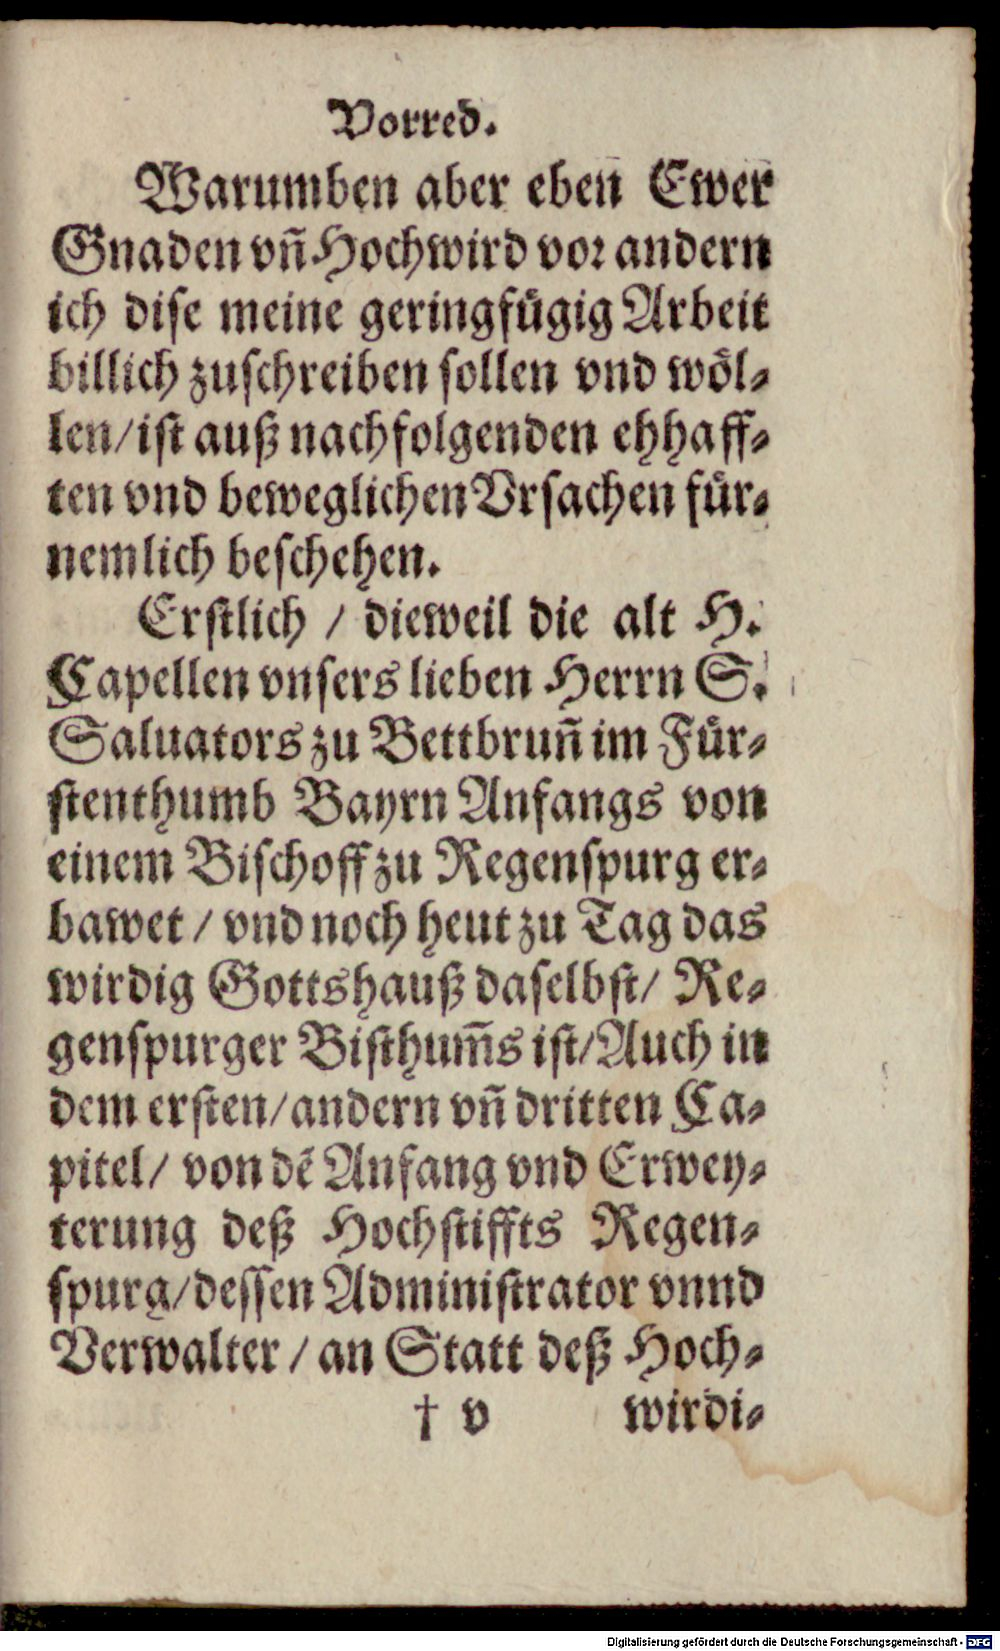 Vorred.
Warumben aber eben Ewer
Gnaden vñ Hochwird vor andern
ich dise meine geringfuͤgig Arbeit
billich zuschreiben sollen vnd woͤl-
len/ist auß nachfolgenden ehhaff-
ten vnd beweglichen Vrsachen fuͤr-
nemlich beschehen.
Erstlich / dieweil die alt H.
Capellen vnsers lieben Herrn S.
Saluators zu Bettbruñ im Fuͤr-
stenthumb Bayrn Anfangs von
einem Bischoff zu Regenspurg er-
bawet / vnd noch heut zu Tag das
wirdig Gottshauß daselbst/ Re-
genspurger Bisthum̃s ist/Auch in
dem ersten/andern vñ dritten Ca-
pitel/ von dẽ Anfang vnd Erwey-
terung deß Hochstiffts Regen-
spurg/dessen Administrator vnnd
Verwalter / an Statt deß Hoch-
† v wirdi-
Digitalisierung gefördert durch die Deutsche Forschungsgemeinschaft - DFG